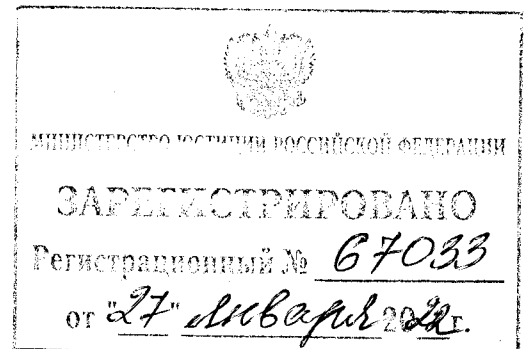 МИНИСТЕРСТВО ЮСТИЦИИ РОССИЙСКОЙ ФЕДЕРАЦИИ
ЗАРЕГИСТРИРОВАНО
Регистрационный № 67033
от "27" января 2022 г.